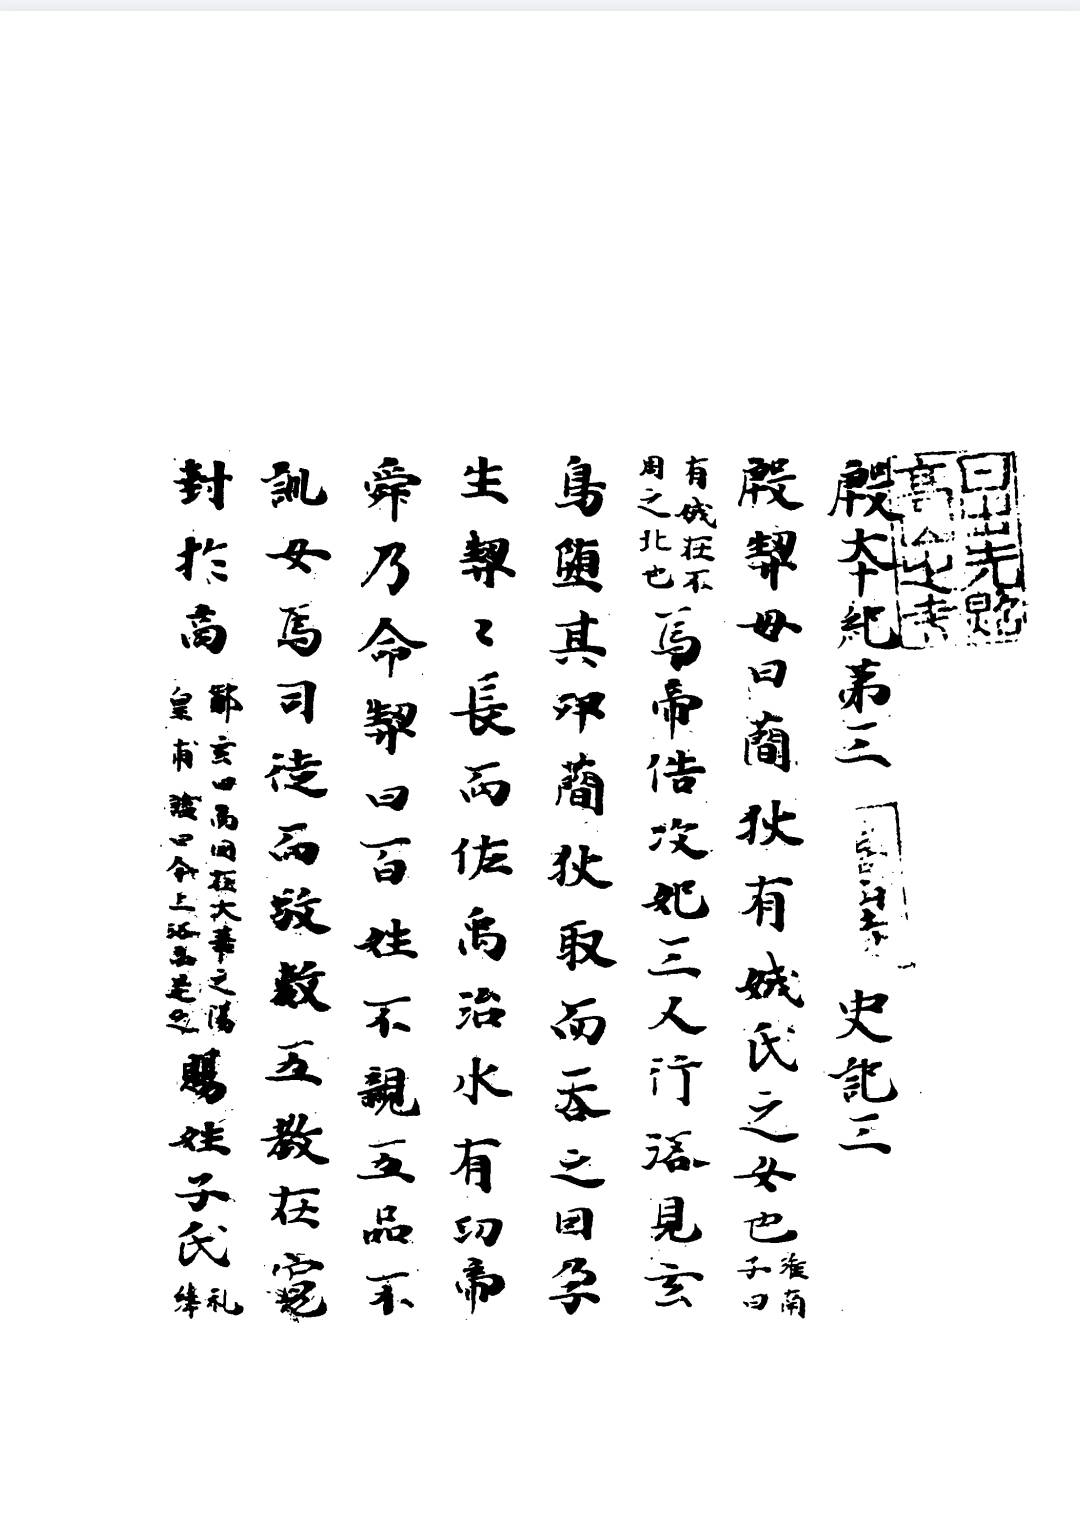 殷本紀第三 史記三
殷契母曰蕳狄有娀氏之女也淮南子曰
有娀在不周之北也為帝俈次妃三人行浴見玄
鳥堕其卵蕳狄取而吞之因孕
生契〻長而佐禹治水有功帝
舜乃命契曰百姓不親五品不
訓女為司徒而敬敷五教在寛
封於商鄭玄曰商国在大華之陽皇甫謐曰今上洛商是也賜姓子氏礼緯